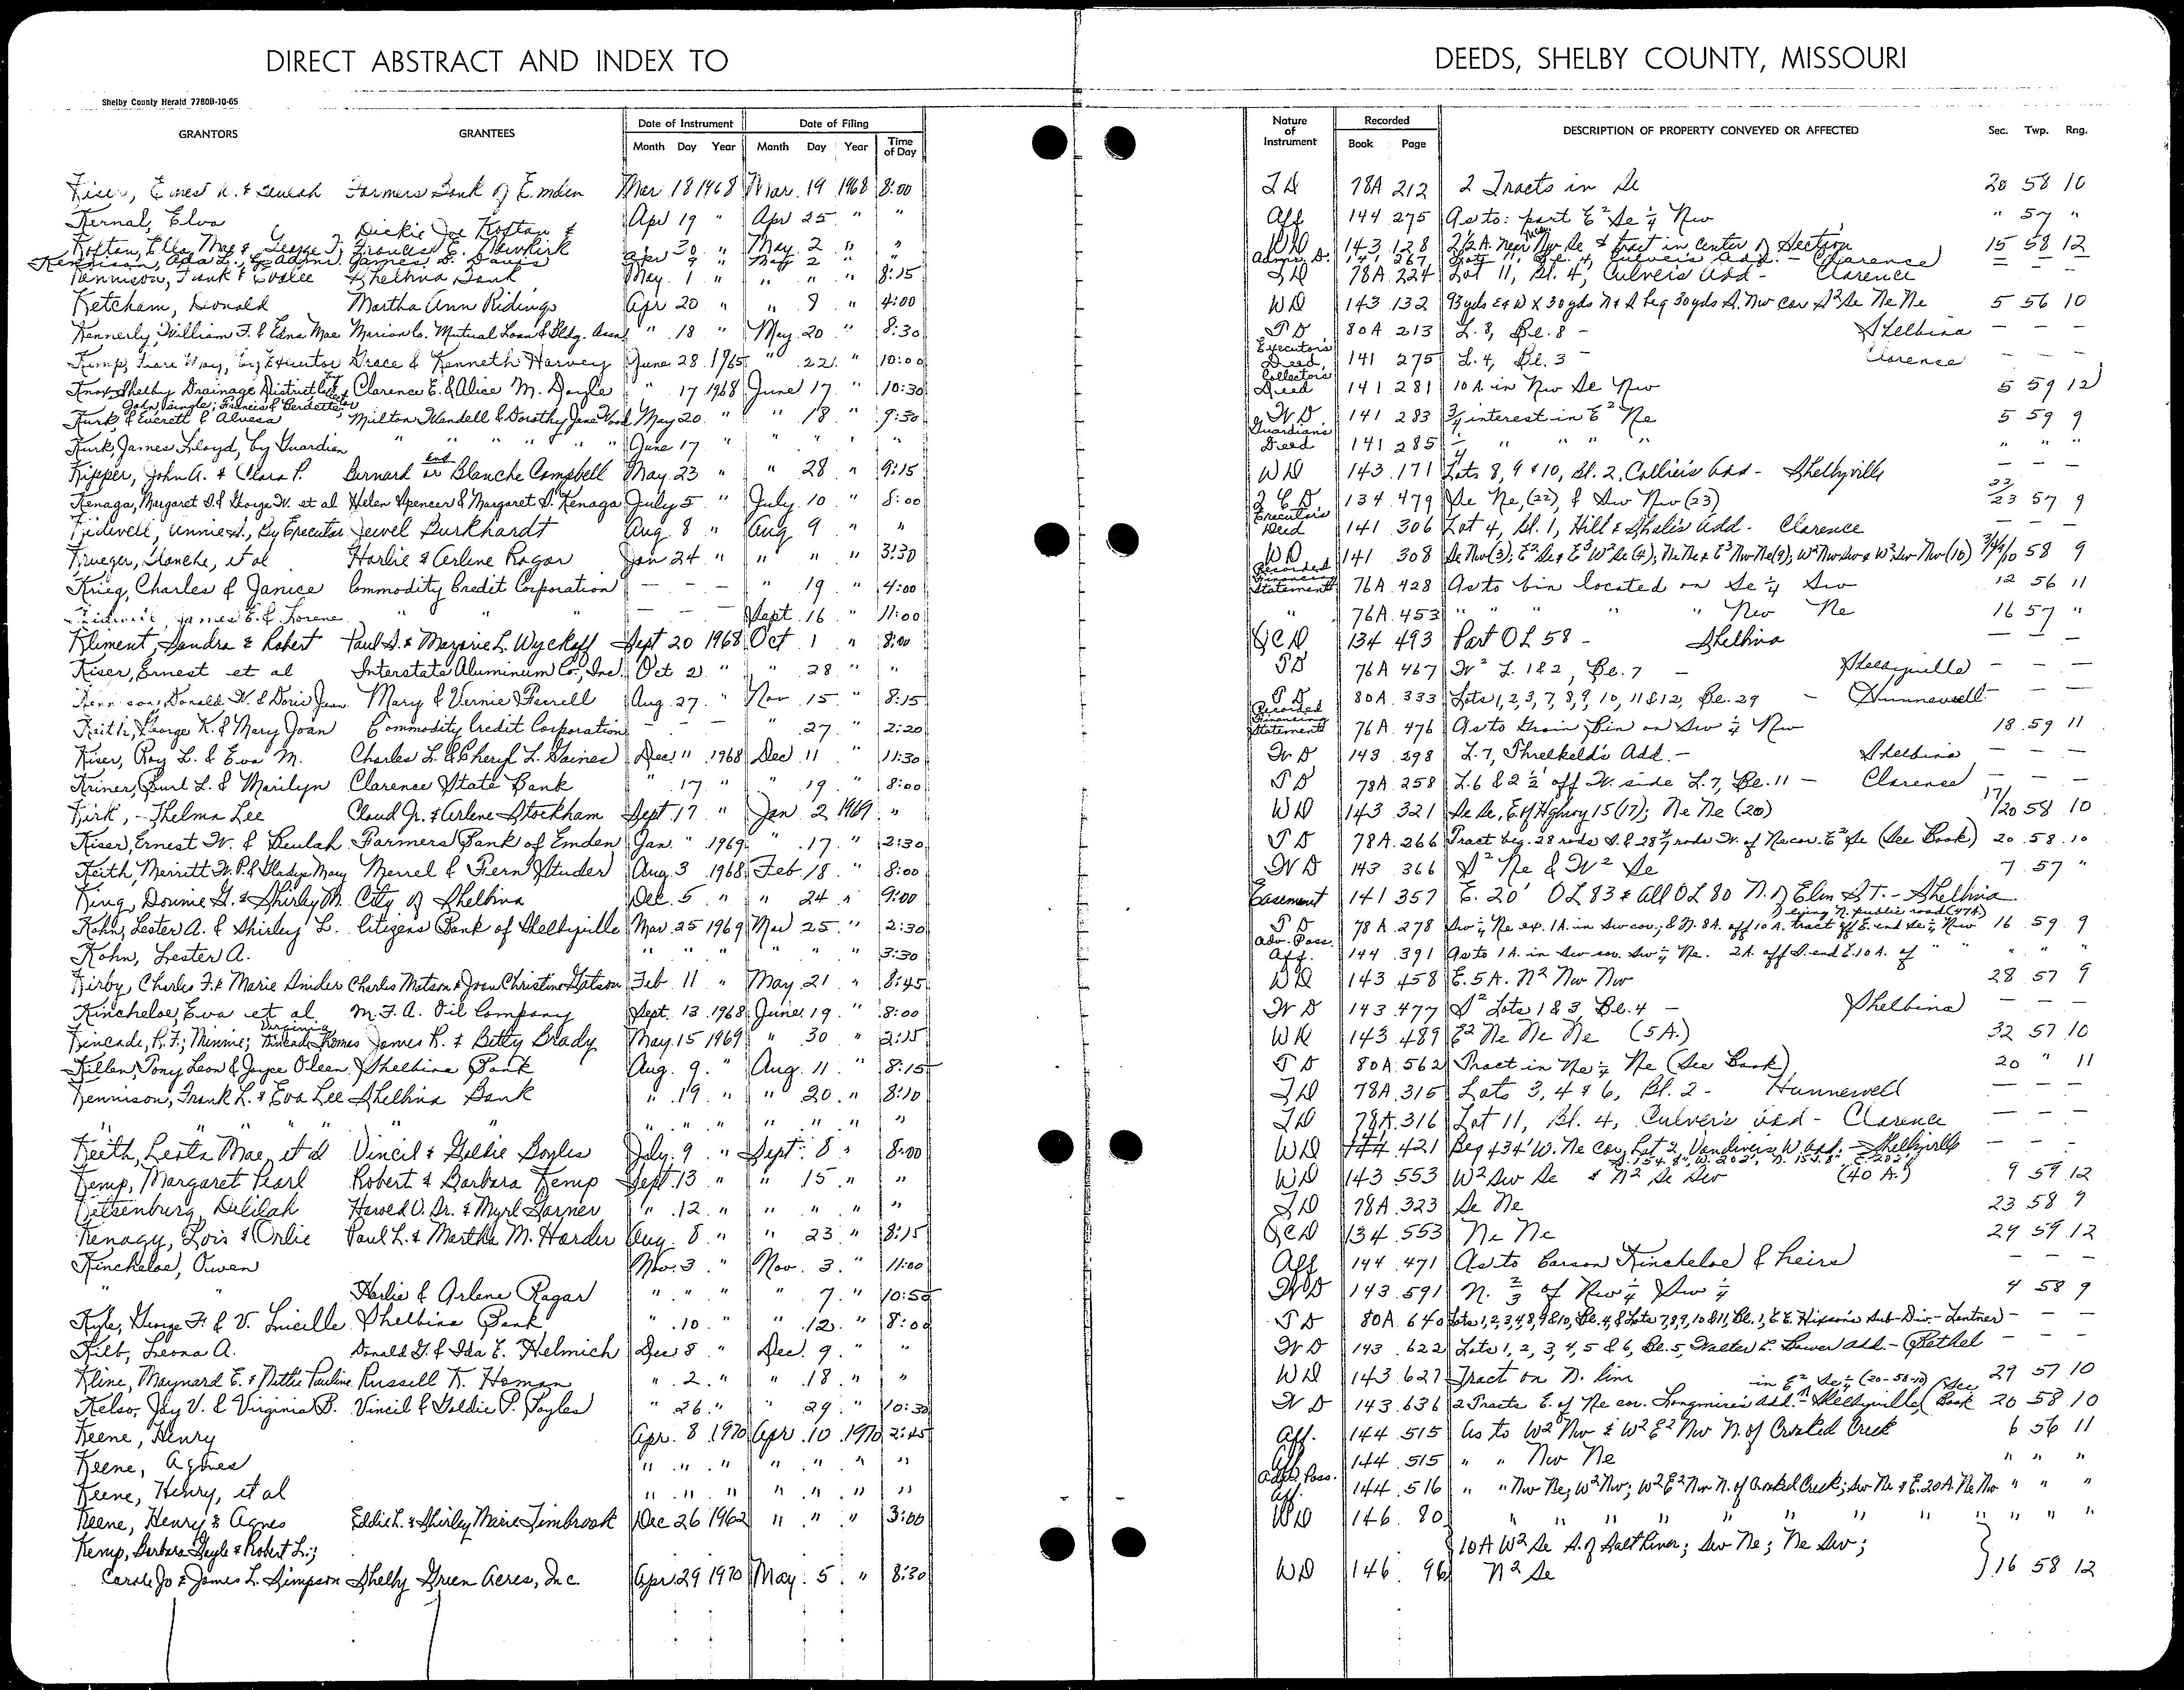 DIRECT ABSTRACT AND INDEX TO DEEDS, SHELBY COUNTY, MISSOURI
Shelby County Herald 7780B-10-65
GRANTORS GRANTEES Date of Instrument Month Day Year Date of Filing Month Day Year Time of Day Nature of Instrument Recorded Book Page DESCRIPTION OF PROPERTY CONVEYED OR AFFECTED Sec. Twp. Rng.
Kiser, Ernest W. & Beulah Farmers Bank of Emden Mar 18 1968 Mar. 19 1968 8:00 TD 78A 212 2 Tracts in Se 20 58 10
Kernal, Elva Apr 19 " Apr 25 " " Aff 144 275 As to: part E² Se ¼ Nw " 57 "
Koftan, Ella Mae & George J. Dickie Joe Koftan & Frances E. Newkirk Apr 30 " May 2 " " WD 143 128 2½ A. near Nw Se & tract in center of Section 15 58 12
Kennison, Ada L., by Admr. James D. Davis Apr 9 " May 2 " " Admr. D. 141 267 Lot 11, Bl. 4, Culver's Add. - Clarence — — —
Kennison, Frank & Evalee Shelbina Bank May 1 " " " " 8:15 TD 78A 224 Lot 11, Bl. 4, Culver's Add - Clarence
Ketcham, Donald Martha Ann Ridings Apr 20 " " 8 " 4:00 WD 143 132 93 yds E & W X 30 yds N & S beg 30 yds S. Nw cor S² Se Ne Ne 5 56 10
Kennerly, William F. & Edna Mae Marion Co. Mutual Loan & Bldg. Assn " 18 " May 20 " 8:30 TD 80A 213 L. 8, Bl. 8 - Shelbina — — —
Kemp, May, by Executor Grace & Kenneth Harvey June 28 1965 " 22 " 10:00 Executor's Deed 141 275 L. 4, Bl. 3 - Clarence — — —
Knox-Shelby Drainage District by Collector Clarence E. & Alice M. Doyle " 17 1968 June 17 " 10:30 Collector's Deed 141 281 10 A. in Nw Se Nw 5 59 12
Kurk, John, single; Francis & Berdetta & Everett & Alvesa Milton Wendell & Dorothy Jane Wood May 20 " " 18 " 9:30 WD 141 283 ¾ interest in E² Ne 5 59 9
Kurk, James Floyd, by Guardian " " " " " June 17 " " " " " Guardian's Deed 141 285 ¼ " " " " " " "
Kipper, John A. & Clara P. Bernard and Blanche Campbell May 23 " " 28 " 9:15 WD 143 171 Lots 8, 9 & 10, Bl. 2, Collier's Add - Shelbyville — — —
Kenaga, Margaret S. & George W. et al Helen Spencer & Margaret S. Kenaga July 5 " July 10 " 8:00 QCD 134 479 Se Ne, (22), & Sw Nw (23) 22/23 57 9
Kidwell, Annie S., By Executor Jewel Burkhardt Aug 8 " Aug 9 " " Executor's Deed 141 306 Lot 4, Bl. 1, Hill & Shale's Add - Clarence — — —
Krueger, Blanche, et al Harlie & Arlene Ragar Jan 24 " " " " 3:30 WD 141 308 Se Nw (3); E² Se & E³ W² Se (4); Ne Ne & E³ Nw Ne (9); W² Nw Sw & W² Sw Nw (10) 3/4/9/10 58 9
Krieg, Charles & Janice Commodity Credit Corporation — — — " 19 " 4:00 Recorded Financing Statement 76A 428 As to bin located on Se ¼ Sw 12 56 11
Kidwell, James E. & Lorene " " " — — — Sept. 16 " 11:00 " 76A 453 " " " " Nw Ne 16 57 "
Kliment, Sandra & Robert Paul S. & Marjorie L. Wyckoff Sept 20 1968 Oct 1 " 8:00 QCD 134 493 Part OL 58 - Shelbina — — —
Kiser, Ernest et al Interstate Aluminum Co., Inc. Oct 2 " " 28 " " TD 76A 467 W² L. 1 & 2, Bl. 7 - Shelbyville — — —
Kennison, Donald W. & Doris Jean Mary & Vernie Ferrell Aug. 27 " Nov 15 " 8:15 TD 80A 333 Lots 1, 2, 3, 7, 8, 9, 10, 11 & 12, Bl. 29 - Hunnewell — — —
Keith, George K. & Mary Joan Commodity Credit Corporation — — — " 27 " 2:20 Recorded Financing Statement 76A 476 As to Grain Bin on Sw ¼ Nw 18 59 11
Kiser, Roy L. & Eva M. Charles L. & Cheryl L. Gaines Dec 11 1968 Dec 11 " 11:30 WD 143 298 L. 7, Threlkeld's Add. - Shelbina — — —
Kriner, Burl L. & Marilyn Clarence State Bank " 17 " " 19 " 8:00 TD 78A 258 L. 6 & 2½' off W. side L. 7, Bl. 11 - Clarence — — —
Kirk, - Thelma Lee Claud Jr. & Arlene Stockham Sept 17 " Jan 2 1969 " WD 143 321 Se Se, E. of Highway 15 (17); Ne Ne (20) 17/20 58 10
Kiser, Ernest W. & Beulah Farmers Bank of Emden Jan. " 1969 " 17 " 2:30 TD 78A 266 Tract beg. 28 rods S. & 28 4/7 rods W. of Ne cor. E² Se (See Book) 20 58 10
Keith, Merritt W. P. & Gladys Mary Merrel & Fern Studer Aug 3 1968 Feb 18 " 8:00 WD 143 366 S² Ne & W² Se 7 57 "
King, Donnie G. & Shirley M. City of Shelbina Dec. 5 " " 24 " 9:00 Easement 141 357 E. 20' OL 83 & All OL 80 N. of Elm St. - Shelbina
Kohn, Lester A. & Shirley L. Citizens Bank of Shelbyville Mar. 25 1969 Mar 25 " 2:30 TD 78A 278 Sw ¼ Ne ex. 1A. in Sw cor.; & N. 8A. off 10 A. tract off E. end Se ¼ Nw lying N. public road (47A) 16 59 9
Kohn, Lester A. " " " " " " 3:30 Adv. Poss. Aff. 144 391 As to 1 A. in Sw cor. Sw ¼ Ne. 2A. off S. end E. 10 A. of " " " " "
Kirby, Charles F. & Marie Snider Charles Matson & Joan Christine Matson Feb 11 " May 21 " 8:45 WD 143 458 E. 5 A. N² Nw Nw 28 57 9
Kincheloe, Eva et al M. F. A. Oil Company Sept. 13 1968 June 19 " 8:00 WD 143 477 S² Lots 1 & 3, Bl. 4 - Shelbina — — —
Kincade, R. F.; Minnie; Virginia Kincade Thomas James R. & Betty Brady May 15 1969 " 30 " 2:15 WD 143 489 E² Ne Ne Ne (5A.) 32 57 10
Killen, Tony Leon & Joyce Oleen Shelbina Bank Aug. 9 " Aug. 11 " 8:15 TD 80A 562 Tract in Ne ¼ Ne (See Book) 20 " 11
Kennison, Frank L. & Eva Lee Shelbina Bank " 19 " " 20 " 8:10 TD 78A 315 Lots 3, 4 & 6, Bl. 2 - Hunnewell — — —
" " " " " " " " " " " " TD 78A 316 Lot 11, Bl. 4, Culver's Add - Clarence — — —
Keith, Leota Mae, et al Vincil & Goldie Boyles July 9 " Sept. 8 " 8:00 WD 144 421 Beg 434' W. Ne cor Lot 2, Vandiver's W. Add. - Shelbyville — — —
S. 154.8", W. 202', N. 154.8", E. 202'
Kemp, Margaret Pearl Robert & Barbara Kemp Sept 13 " " 15 " " WD 143 553 W² Sw Se & N² Se Sw (40 A.) 9 59 12
Ketsenburg, Delilah Harold O. Sr. & Myrl Garner " 12 " " " " " TD 78A 323 Se Ne 23 58 9
Kenagy, Lois & Orlie Paul L. & Martha M. Harder Aug. 8 " " 23 " 8:15 QCD 134 553 Ne Ne 24 59 12
Kincheloe, Owen Nov. 3 " Nov. 3 " 11:00 Aff 144 471 As to Carson Kincheloe & heirs — — —
" " Harlie & Arlene Ragar " " " " 7 " 10:50 WD 143 591 N. ⅔ of Nw ¼ Sw ¼ 4 58 9
Kyle, George F. & V. Lucille Shelbina Bank " 10 " " 12 " 8:00 TD 80A 640 Lots 1, 2, 3, 4, 8, 9 & 10, Bl. 4, & Lots 7, 8, 9, 10 & 11, Bl. 1, E. E. Hixson's Sub-Div. - Lentner — — —
Kilb, Leona A. Donald G. & Ida E. Helmich Dec 8 " Dec. 9 " " WD 143 622 Lots 1, 2, 3, 4, 5 & 6, Bl. 5, Walter C. Bower Add. - Bethel — — —
Kline, Maynard E. & Nettie Pauline Russell K. Homan " 2 " " 18 " " WD 143 627 Tract on N. line 29 57 10
Kelso, Jay V. & Virginia B. Vincil & Goldie P. Boyles " 26 " " 29 " 10:30 WD 143 636 2 Tracts E. of Ne cor. Longmire's Add. - Shelbyville in E² Se ¼ (20-58-10) (See Book 20 58 10
Keene, Henry Apr. 8 1970 Apr. 10 1970 2:45 Aff. 144 515 As to W² Nw & W² E² Nw N. of Crooked Creek 6 56 11
Keene, Agnes " " " " " " " Aff 144 515 " " Nw Ne " " "
Keene, Henry, et al " " " " " " " Adv. Poss. Aff. 144 516 " " Nw Ne; W² Nw; W² E² Nw N. of Crooked Creek; Sw Ne & E. 20 A. Ne Nw " " "
Keene, Henry & Agnes Eddie L. & Shirley Marie Timbrook Dec 26 1962 " " " 3:00 WD 146 80 " " " " " " " " " " "
Kemp, Barbara Gayle & Robert L.; 10A W² Se S. of Salt River; Sw Ne; Ne Sw;
Carole Jo & James L. Simpson Shelby Green Acres, Inc. Apr 29 1970 May 5 " 8:30 WD 146 96 N² Se 16 58 12